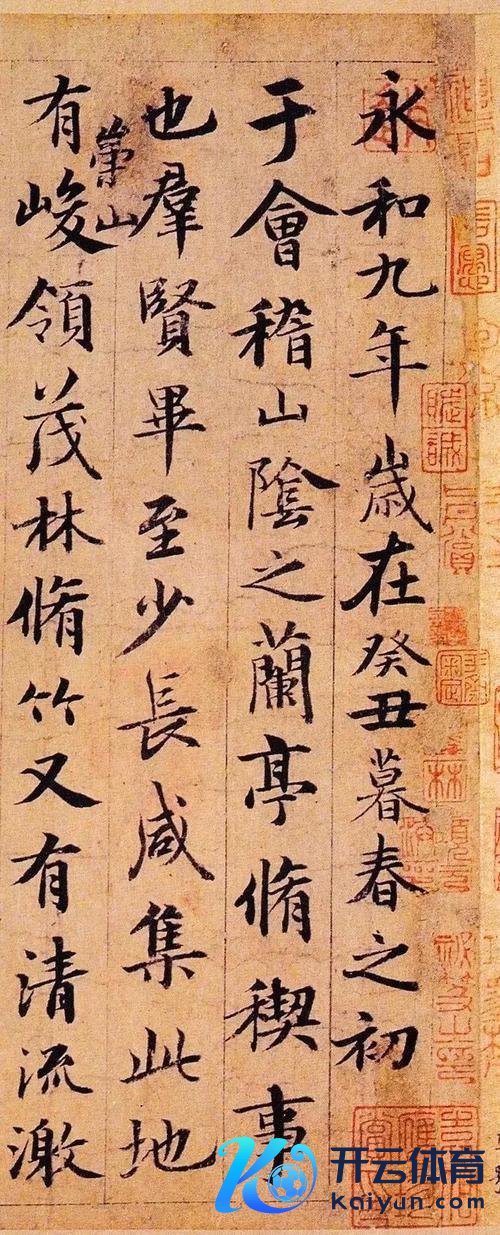 永和九年歲在癸丑暮春之初
于會稽山陰之蘭亭脩稧事
也羣賢畢至少長咸集此地
有崇山峻領茂林脩竹又有清流激
开云体育
Kaiyun.com